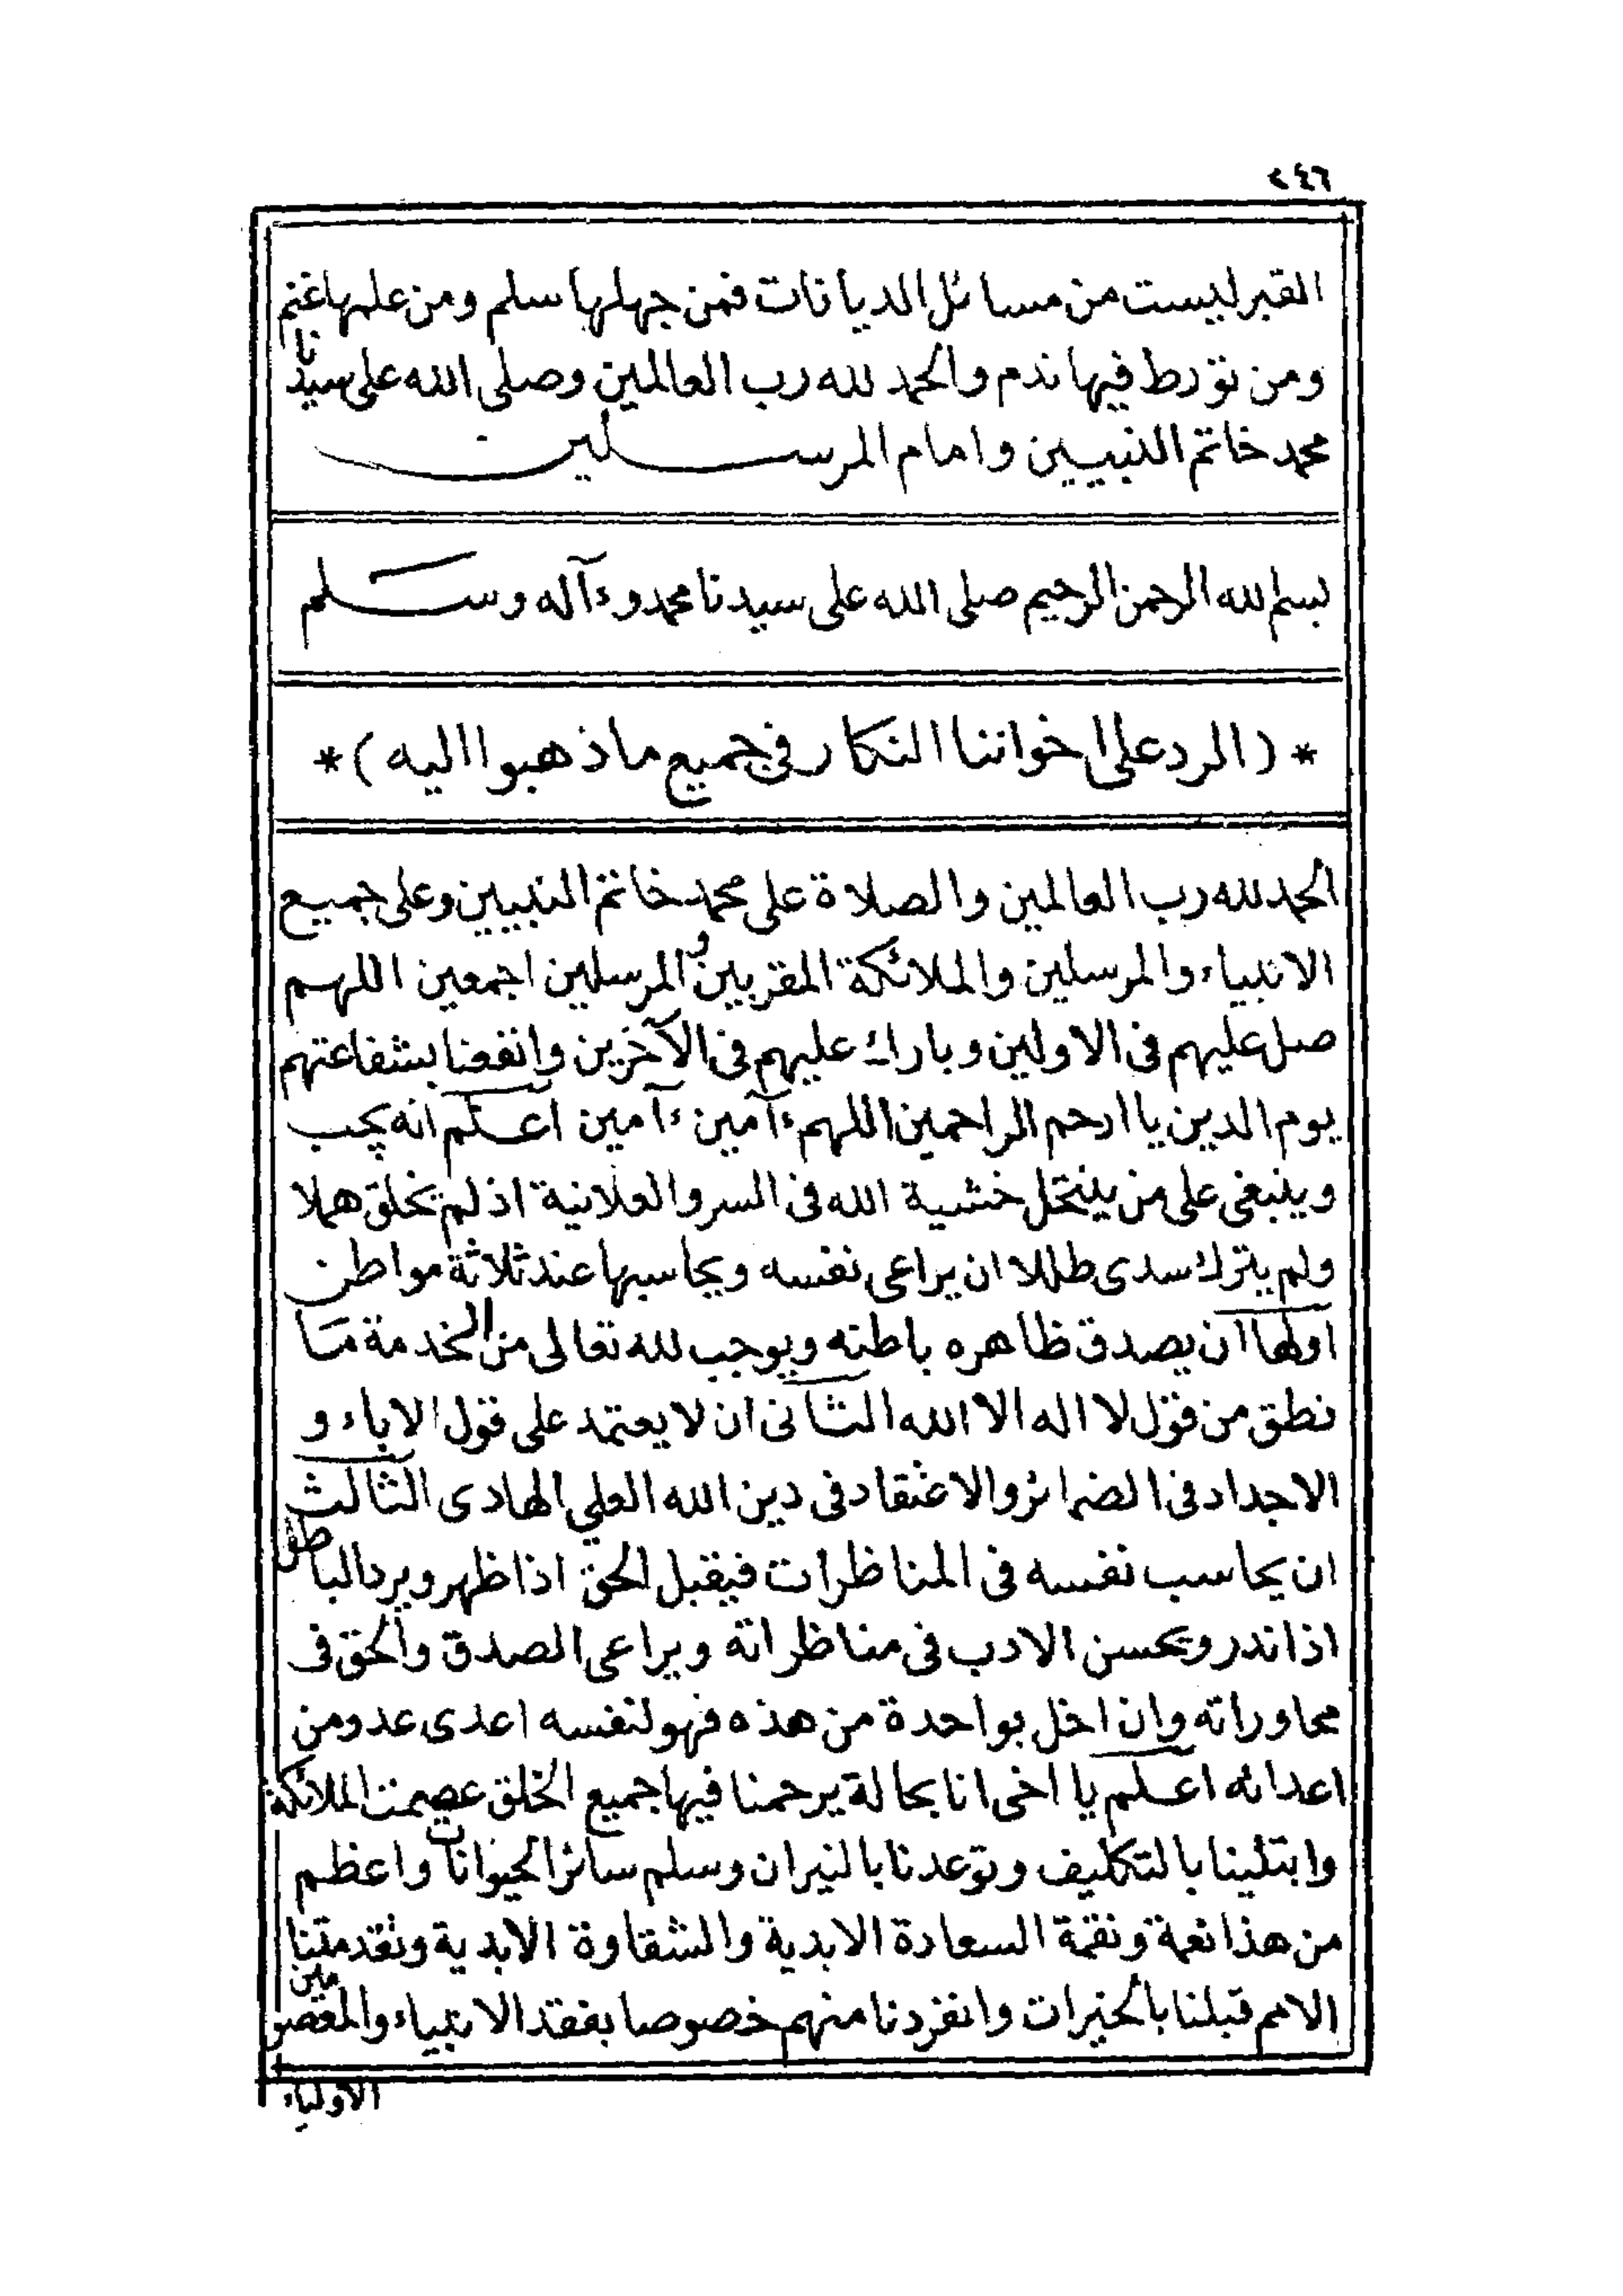 ٢٤٦
القبر ليست من مسائل الديانات فمن جهلها سلم ومن علمها غنم
ومن تورط فيها ندم والحمد لله رب العالمين وصلى الله على سيدنا
محمد خاتم النبيين وامام المرسلين
بسم الله الرحمن الرحيم صلى الله على سيدنا محمد وءآله وسلم
* (الرد على اخواننا النكار في جميع ما ذهبوا اليه) *
الحمد لله رب العالمين والصلاة على محمد خاتم النبيين وعلى جميع
الانبياء والمرسلين والملائكة المقربين والمرسلين اجمعين اللهم
صل عليهم فى الاولين وبارك عليهم فى الآخرين وانفعنا بشفاعتهم
يوم الدين يا ارحم الراحمين اللهم ءآمين ءآمين اعلم انه يجب
وينبغى على من ينتحل خشية الله فى السر والعلانية اذ لم يخلق هملا
ولم يترك سدى طللا ان يراعى نفسه ويحاسبها عند ثلاثة مواطن
اولها ان يصدق ظاهره باطنه ويوجب لله تعالى من الخدمة ما
نطق من قول لا اله الا الله الثانى ان لا يعتمد على قول الاباء و
الاجداد فى الضمائر والاعتقاد فى دين الله العلي الهادى الثالث
ان يحاسب نفسه فى المناظرات فيقبل الحق اذا ظهر ويرد الباطل
اذا ندر ويحسن الادب فى مناظراته ويراعى الصدق والحق فى
محاوراته وان اخل بواحدة من هذه فهو لنفسه اعدى عدو من
اعدائه اعلم يا اخى انا بحالة يرحمنا فيها جميع الخلق عصمت الملائكة
وابتلينا بالتكليف وتوعدنا بالنيران وسلم سائر الحيوانات واعظم
من هذا نعمة ونقمة السعادة الابدية والشقاوة الابدية وتقدمتنا
الامم قبلنا بالخيرات وانفردنا منهم خصوصا بفقد الانبياء والمعصومين
الاولياء